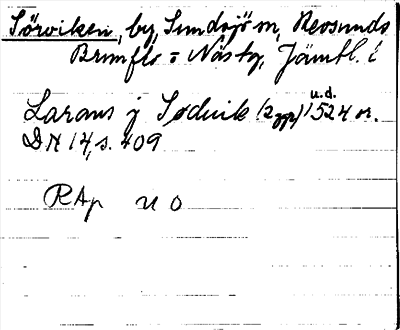 Sörviken, by, Sundsjö sn, Revsunds
Brunflo o Näs tg, Jämtl. l
Larans j Sødvik (2 ggr) u.d. 1524 or.
DN 14, s. 409
RAp NO